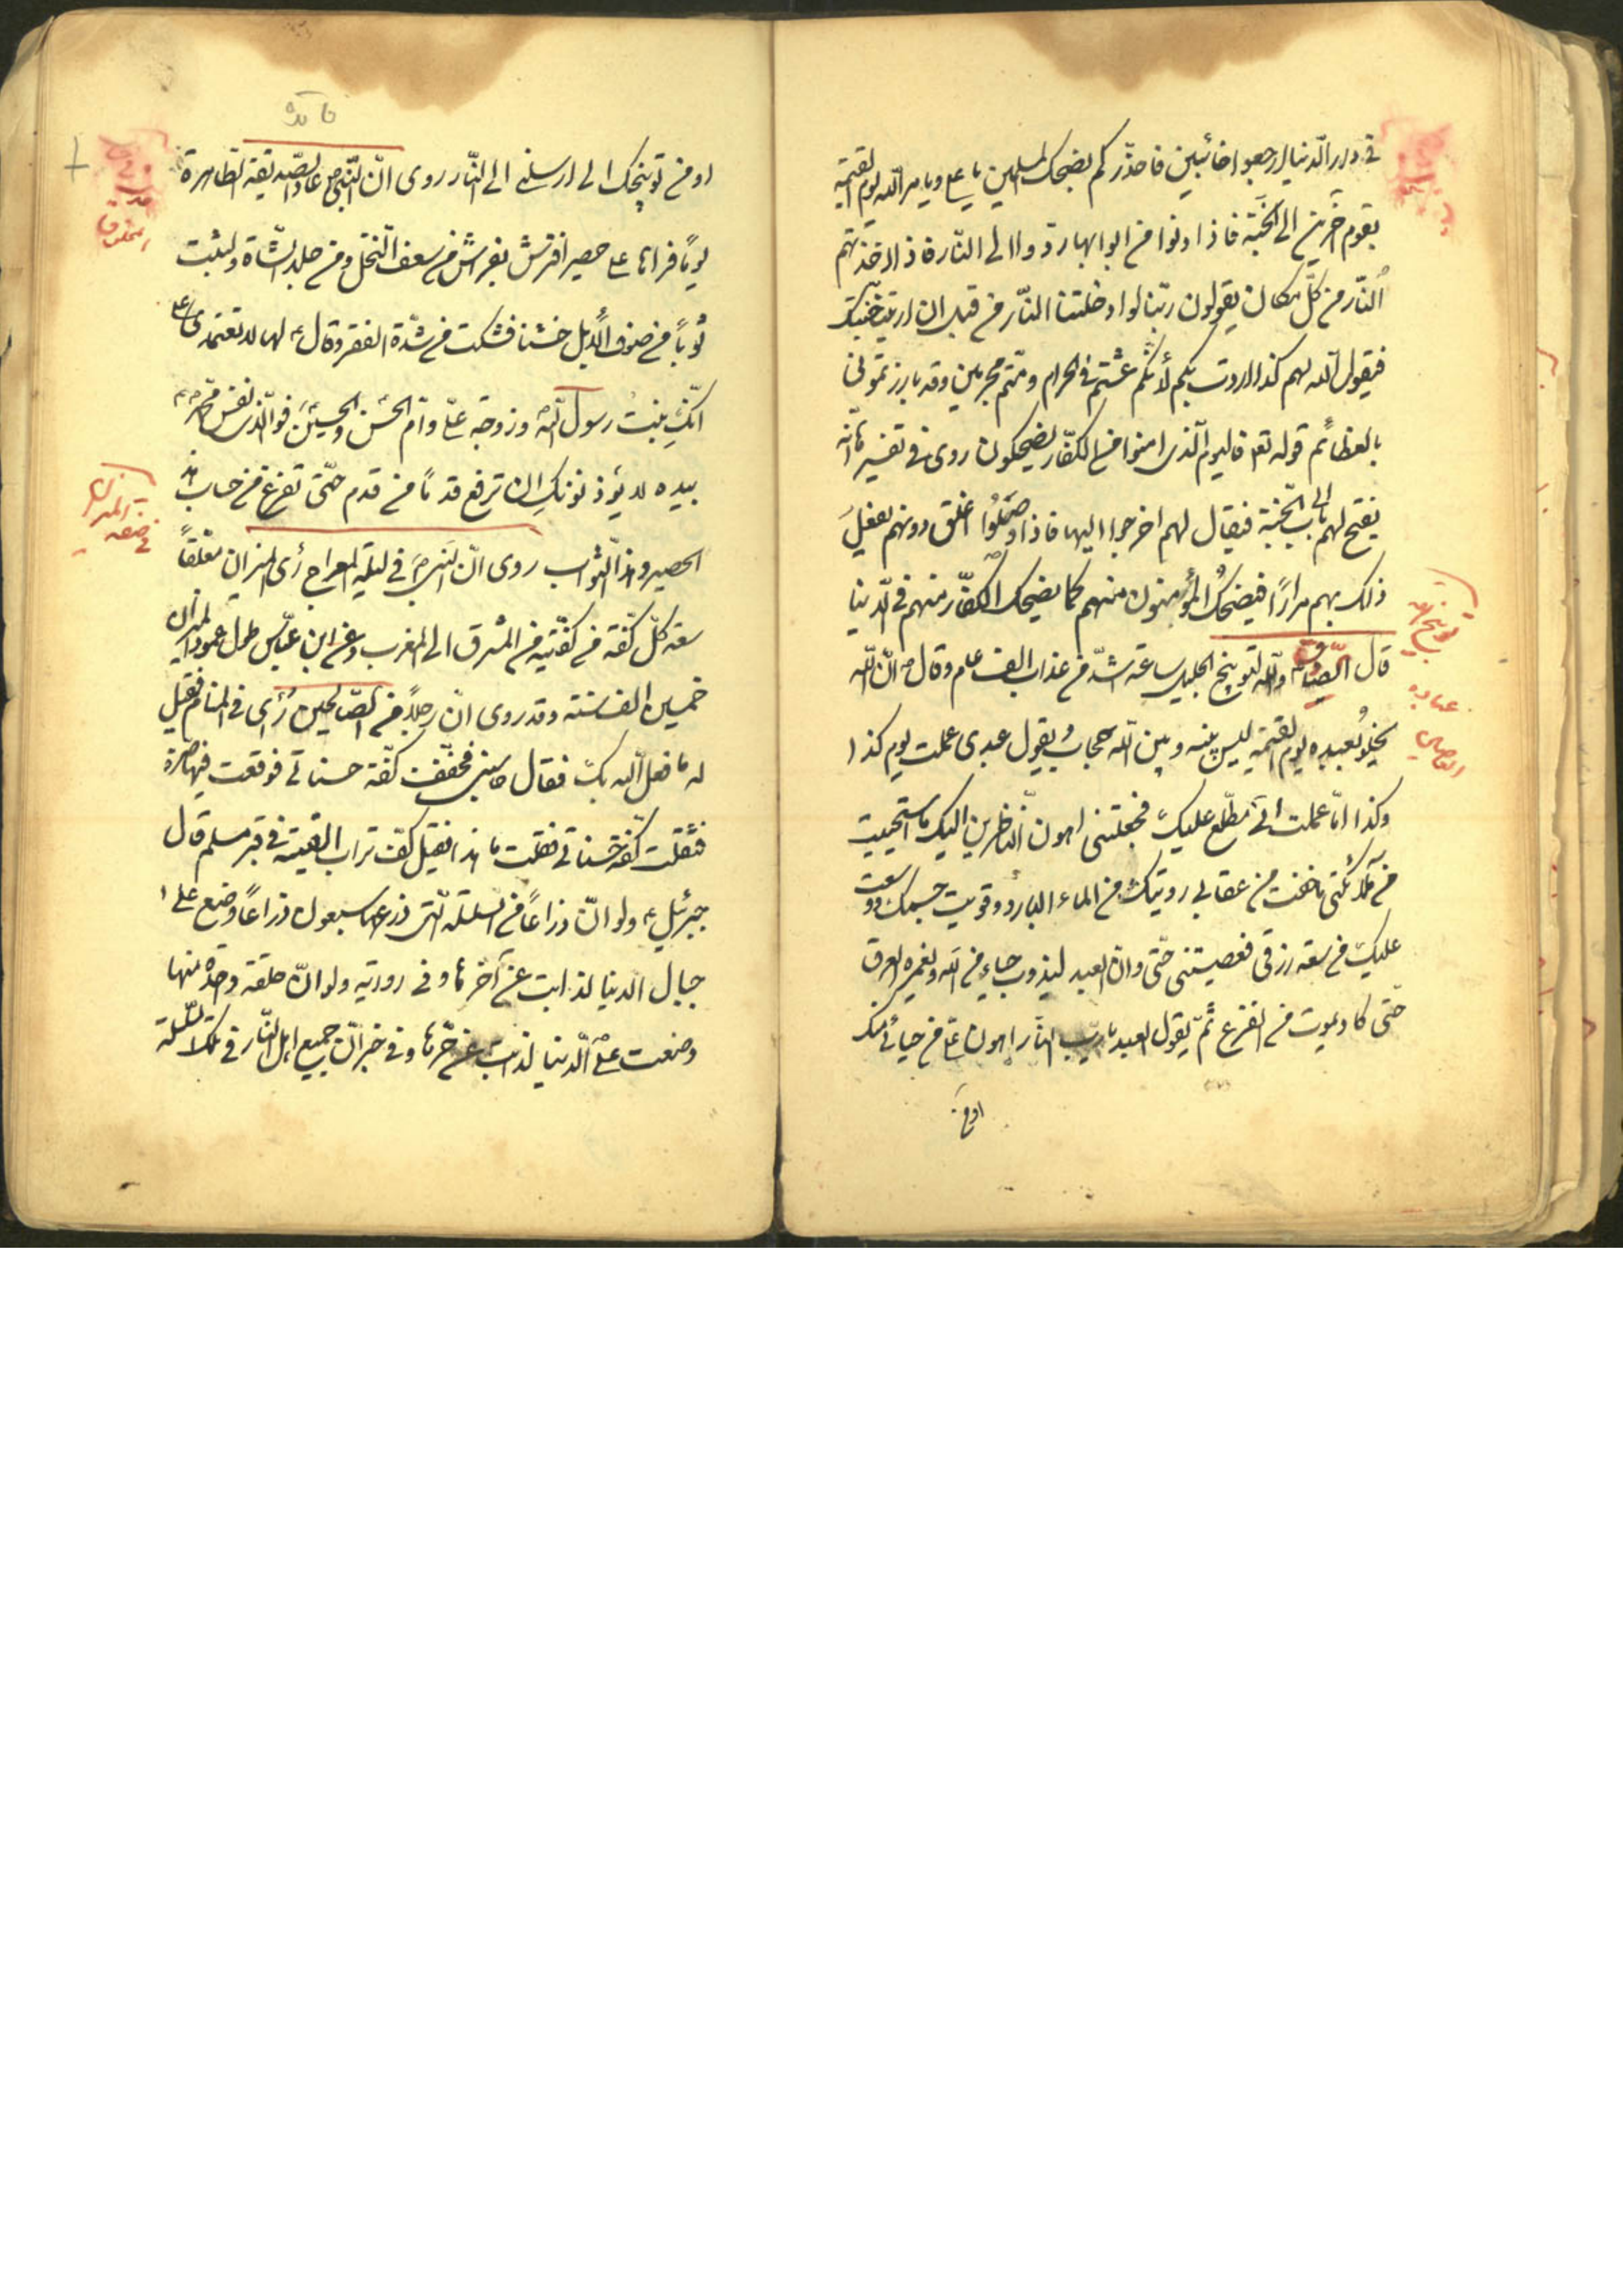 في دار الدنيا ارجعوا خائبين فاحذركم بضحك المسلمين يا علي ويامر الله يوم القيمة
بقوم آخرين الى الجنة فاذا دنوا من ابوابها ردوا الى النار فاذا اخذتهم
النار من كل مكان يقولون ربنا لو ادخلتنا النار من قبل ان اريتنا جنتك
فيقول الله لهم كذا اردت بكم لأنكم عشتم في الحرام ومتم مجرمين وقد بارزتموني
بالعظائم قوله تعـ فاليوم الذي امنوا من الكفار يضحكون روى في تفسيرها انه
يفتح لهم باب الى الجنة فيقال لهم اخرجوا اليها فاذا وصلوا اغلق دونهم يفعل
ذلك بهم مرارًا فيضحك المؤمنون منهم كما يضحك الكفار منهم في الدنيا
قال الصادق والله لتوبيخ الجليل ساعة اشد من عذاب الف عام وقال ص ان الله
يخلو بعبده يوم القيمة ليس بينه وبين الله حجاب يقول عبدي عملت يوم كذا
وكذا اما عملت اني مطلع عليك فجعلتني اهون الناظرين اليك ما استحييت
من ملائكتي ما خفت من عقابي رويتك من الماء البارد وقويت جسمك ووسعت
عليك من سعة رزقي فعصيتني حتى وان العبد ليذوب حياء من الله ويغمره العرق
حتى كاد يموت من الفزع ثم يقول العبد يا رب النار اهون علي من حيائي منك
او من
توبيخ الله
عباده
العاصين
فائده
او من توبيخك الي ارسلني الى النار روى ان النبي ص عاد الصديقة الطاهرة
يومًا فراها على حصير افترش بفراش من سعف النخل ومن جلد الشاة ولبست
ثوبًا من صوف الابل خشنا فشكت من شدة الفقر وقال لها لا تعتمدي على
انك بنت رسول الله وزوجة علي وام الحسن والحسين فوالذي نفس محمد
بيده لا يؤذنونك ان ترفع قدمًا من قدم حتى تفرغ من حساب هذ
الحصير وهذا الثواب روى ان النبي ص في ليلة المعراج رأى الميزان معلقًا
سعة كل كفة من كفتيه من المشرق الى المغرب وعن ابن عباس طول عمود الميزان
خمسين الف سنة وقد روى ان رجلًا من الصالحين رُأي في المنام فقيل
له ما فعل الله بك فقال حاسبني فخففت كفة حسناتي فوقعت فيها صرة
فثقلت كفة حسناتي فقلت ما هذا فقيل كف تراب القيته في قبر مسلم قال
جبرئيل ولو ان ذراعًا من السلسلة التي ذرعها سبعون ذراعًا وضع على
جبال الدنيا لذابت عن آخرها وفي رواية ولو ان حلقة واحدة منها
وضعت على الدنيا لذابت من حرها وفي خبر ان جميع اهل النار في تلك السلسلة
في صفة
الميزان